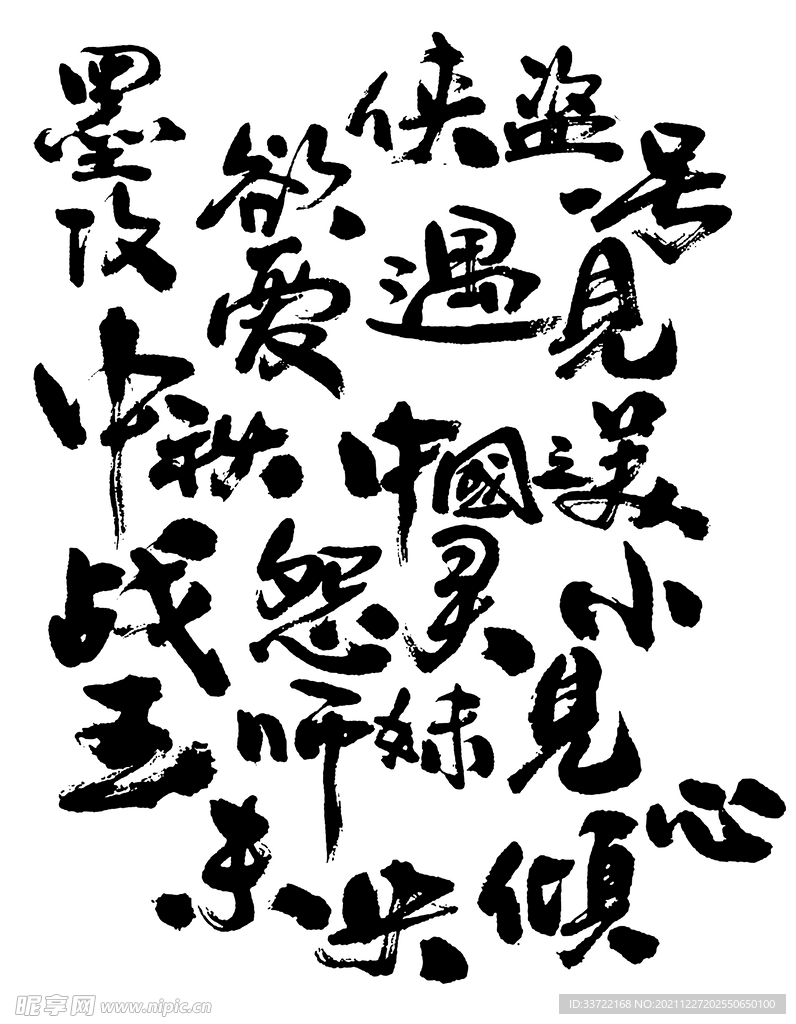 墨攻
欲爱
侠盗一号
遇見
中秋
中國之美
战王
怨灵
小見
师妹
未央
倾心
昵享网 www.nipic.cn
ID:33722168 NO:20211227202550650100